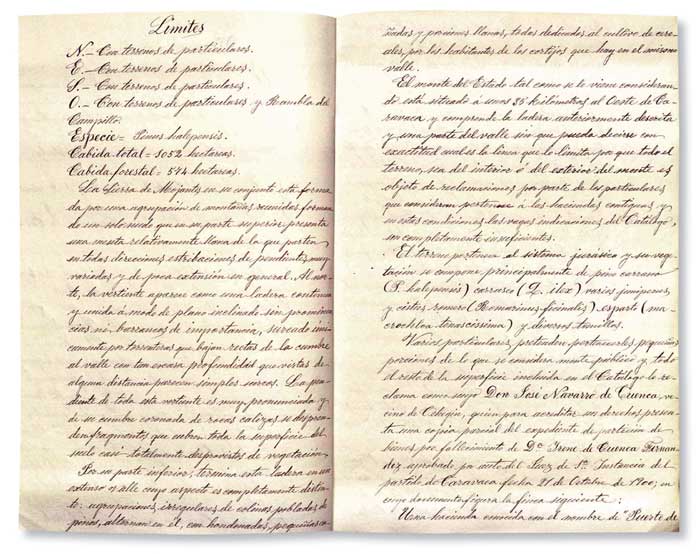 Límites
N.- Con terrenos de particulares.
E.- Con terrenos de particulares.
S.- Con terrenos de particulares.
O.- Con terrenos de particulares y Rambla del
Campillo.
Especie= Pinus halepensis.
Cabida total= 1052 hectareas.
Cabida forestal= 574 hectareas.
La Sierra de Mojants en su conjunto está forma
da por una agrupación de montañas reunidas forman
do un solo nudo que en su parte superior presenta
una meseta relativamente llana de la que parten
en todas direcciones estribaciones de pendientes muy
variadas y de poca extensión en general. Al nor-
te, la vertiente aparece como una ladera continua
y unida á modo de plano inclinado sin prominen
cias ni barrancos de importancia, surcado úni-
camente por torrenteras que bajan rectas de la cumbre
al valle con tan escasa profundidad que vistas de
alguna distancia parecen simples surcos. La pen
diente de toda esta vertiente es muy pronunciada y
de su cumbre coronada de rocas calizas se despren
den fragmentos que cubren toda la superficie del
suelo casi totalmente desprovistos de vegetación.
Por su parte inferior, termina esta ladera en un
extenso valle cuyo aspecto es completamente distin-
to: agrupaciones irregulares de colinas pobladas de
pinos, alternan en él, con hondonadas, pequeñas ca-
ñadas y porciones llanas, todas dedicadas al cultivo de cere-
ales, por los habitantes de los cortijos que hay en el mismo
valle.
El monte del Estado tal como se le viene consideran-
do está situado á unos 25 kilómetros al Oeste de Ca-
ravaca y comprende la ladera anteriormente descrita
y una parte del valle sin que pueda decirse con
exactitud cual es la línea que lo limita por que todo el
terreno, sea del interior ó del exterior del monte es
objeto de reclamaciones por parte de los particulares
que consideran pertenece á las haciendas contiguas y
en estas condiciones las vagas indicaciones del Catálogo,
son completamente insuficientes.
El terreno pertenece al sistema jurásico y su vege-
tación se compone principalmente de pino carrasco
(P. halepensis) carrasca (Q. ilex) varios juniperus
y cistus, romero (Rosmarinus officinalis) esparto (ma
crochloa tenacissima) y diversos tomillos.
Varios particulares, pretenden pertenecerles, pequeñas
porciones de lo que se considera monte público y todo
el resto de la superficie incluida en el Catálogo lo re-
clama como suyo Don José Navarro de Cuenca, ve-
cino de Cehegín, quien para acreditar su derecho, presen-
ta una copia parcial del expediente de partición de
bienes por fallecimiento de Dª Irene de Cuenca Fernan
dez aprobada por auto del Juez de 1ª Instancia del
partido de Caravaca fecha 21 de Octubre de 1900; en
cuyo documento figura la finca siguiente:
Una hacienda conocida con el nombre de "Puerto de